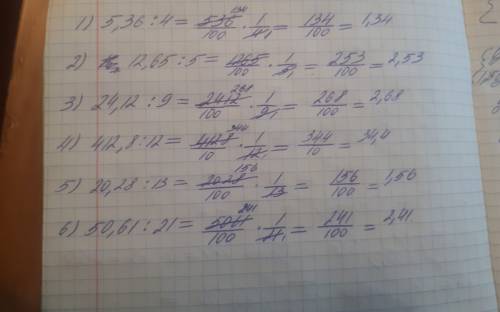 1) 5,36 : 4 = 536/100 134 · 1/4 1 = 134/100 = 1,34
2) 12,65 : 5 = 1265/100 · 1/5 1 = 253/100 = 2,53
3) 24,12 : 9 = 2412/100 268 · 1/9 1 = 268/100 = 2,68
4) 412,8 : 12 = 4128/10 344 · 1/12 1 = 344/10 = 34,4
5) 20,28 : 13 = 2028/100 156 · 1/13 = 156/100 = 1,56
6) 50,61 : 21 = 5061/100 241 · 1/21 1 = 241/100 = 2,41